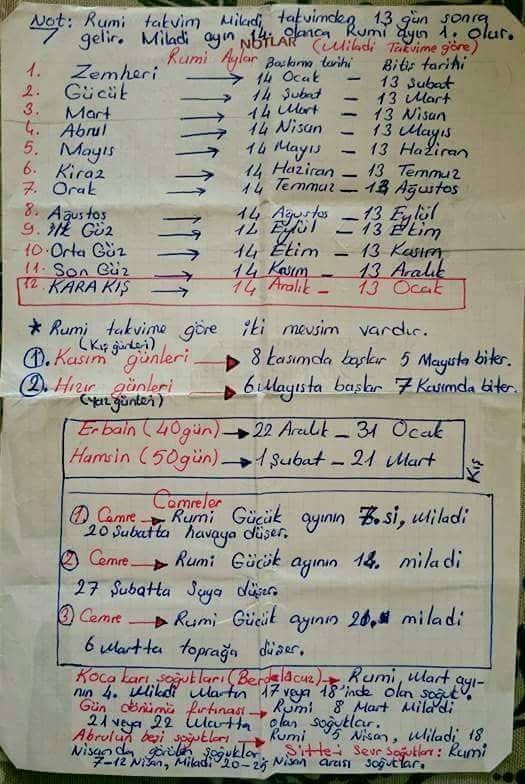 Not: Rumi takvim Miladi takvimden 13 gün sonra
gelir. Miladi ayın 14. olunca Rumi ayın 1. olur.
NOTLAR
Rumi Aylar (Miladi Takvime göre)
Başlama tarihi Bitiş tarihi
1. Zemheri 14 Ocak - 13 Şubat
2. Gücük 14 Şubat - 13 Mart
3. Mart 14 Mart - 13 Nisan
4. Abrul 14 Nisan - 13 Mayıs
5. Mayıs 14 Mayıs - 13 Haziran
6. Kiraz 14 Haziran - 13 Temmuz
7. Orak 14 Temmuz - 13 Ağustos
8. Ağustos 14 Ağustos - 13 Eylül
9. İlk Güz 14 Eylül - 13 Ekim
10. Orta Güz 14 Ekim - 13 Kasım
11. Son Güz 14 Kasım - 13 Aralık
12. KARA KIŞ 14 Aralık - 13 Ocak
* Rumi takvime göre iki mevsim vardır.
(Kış günleri)
1. Kasım günleri 8 kasımda başlar 5 Mayısta biter.
2. Hızır günleri 6 Mayısta başlar 7 Kasımda biter.
(Yaz günleri)
Erbain (40 gün) 22 Aralık - 31 Ocak
Hamsin (50 gün) 1 Şubat - 21 Mart
Kış
Cemreler
1 Cemre Rumi Gücük ayının 7.si, Miladi
20 Şubatta havaya düşer.
2 Cemre Rumi Gücük ayının 14. miladi
27 Şubatta Suya düşer.
3 Cemre Rumi Gücük ayının 21. miladi
6 Martta toprağa düşer.
Koca karı soğukları (Berdelacuz) Rumi Mart ayı-
nın 4. Miladi Martın 17 veya 18'inde olan soğuk.
Gün dönümü fırtınası Rumi 8 Mart Miladi
21 veya 22 Martta olan soğuklar.
Abrulun beşi soğukları Rumi 5 Nisan, Miladi 18
Nisanda görülen soğuklar. Sitte-i Sevr soğukları: Rumi
7-12 Nisan, Miladi 20-25 Nisan arası soğuklar.